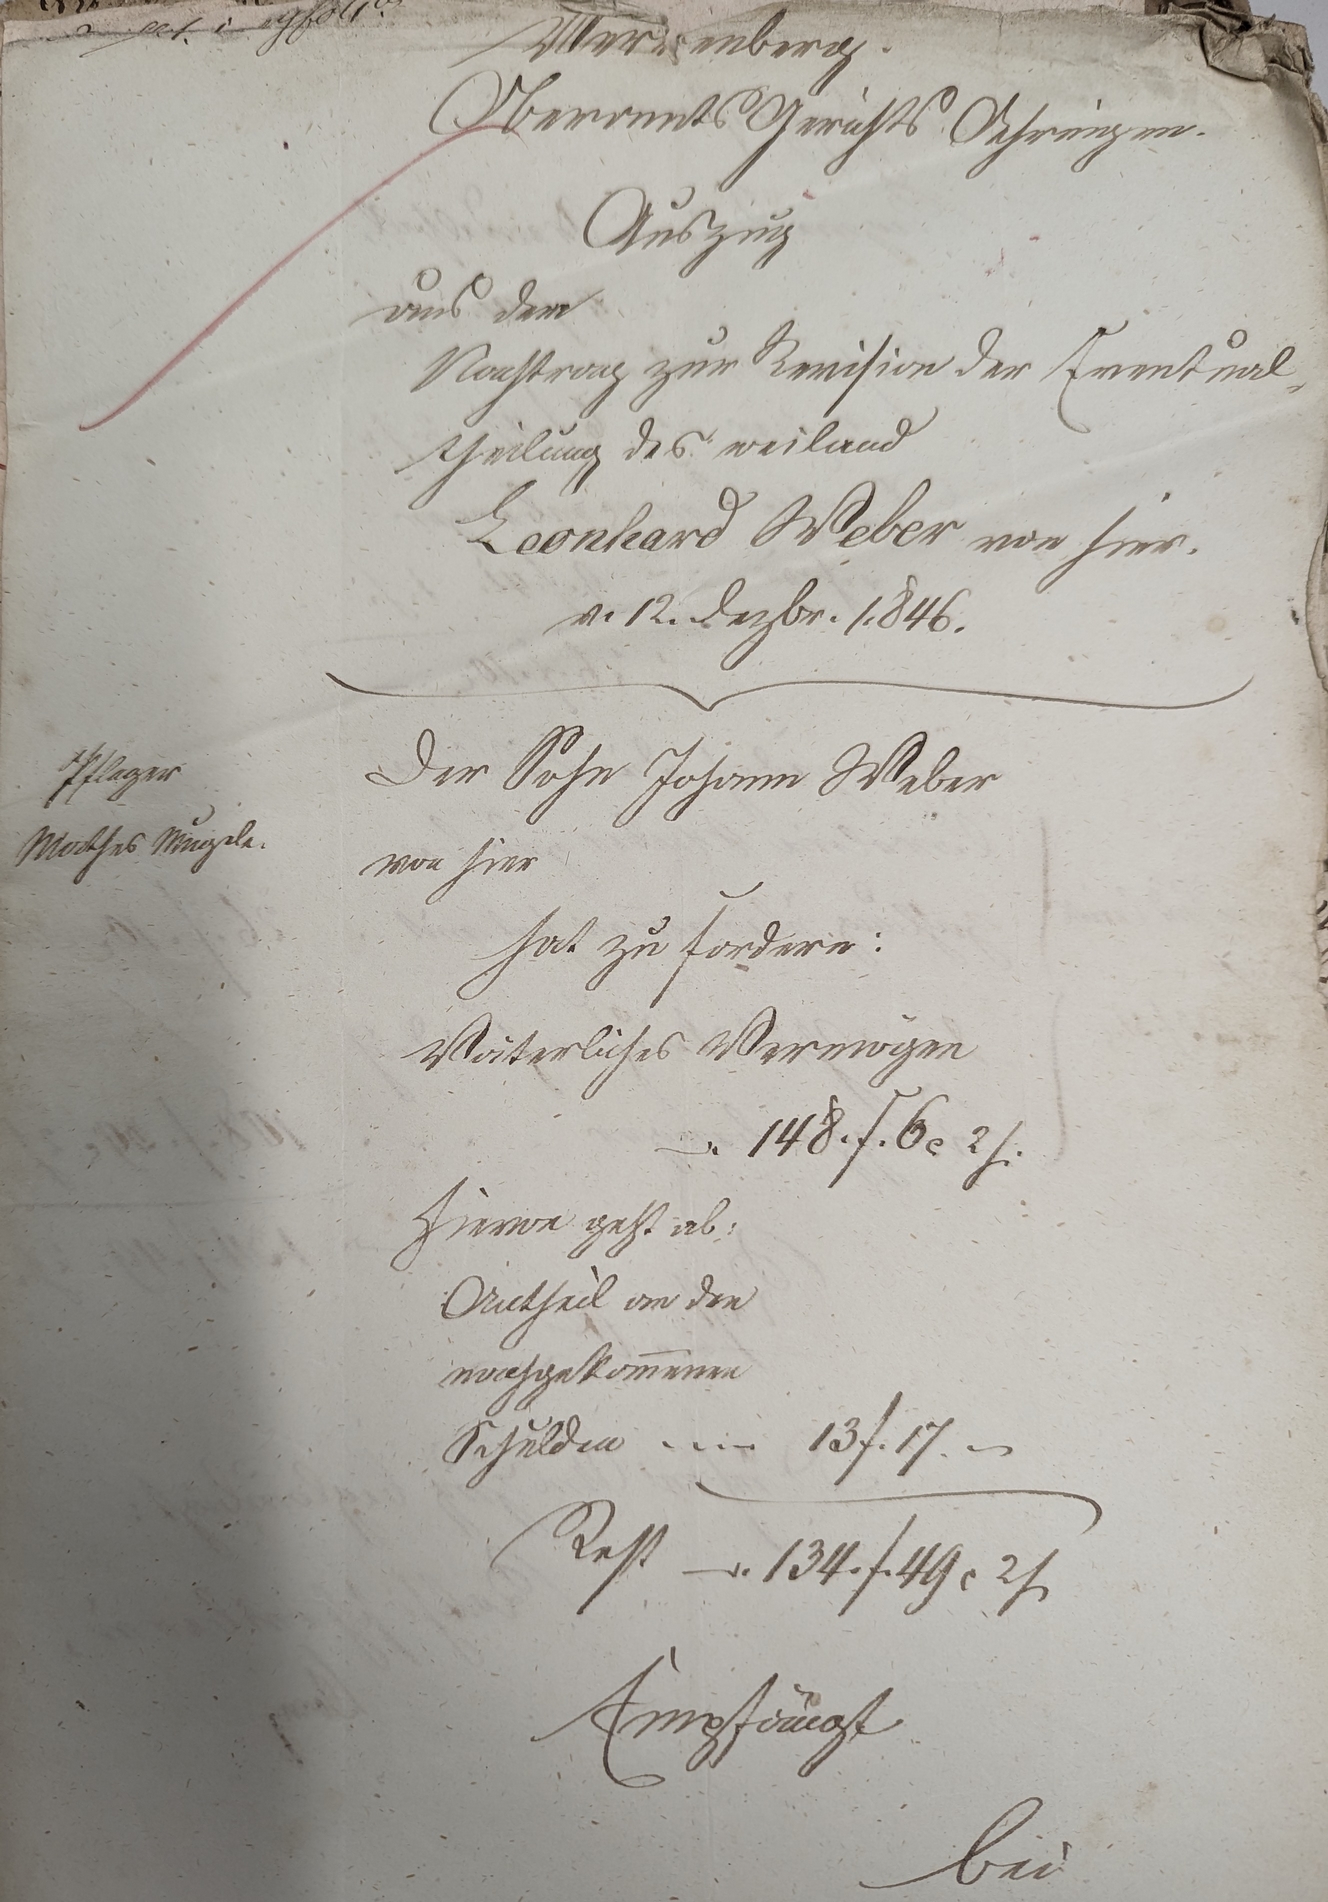 Verrenberg.
Oberamts Gerichts Oehringen.
Auszug
aus dem
Nachtrag zur Revision der Eventual-
theilung des weiland
Leonhard Weber von hier.
v. 12. Dezbr. 1846.
Pfleger
Mathes
Der Sohn Johann Weber
von hier
hat zu fordern:
Väterliches Vermögen
148. f. 6 c 2 h.
Hievon geht ab:
Antheil an den
nachgekom̅enen
Schulden 13 f. 17.
Rest 134. f. 49 c 2 h
Empfängt
bei